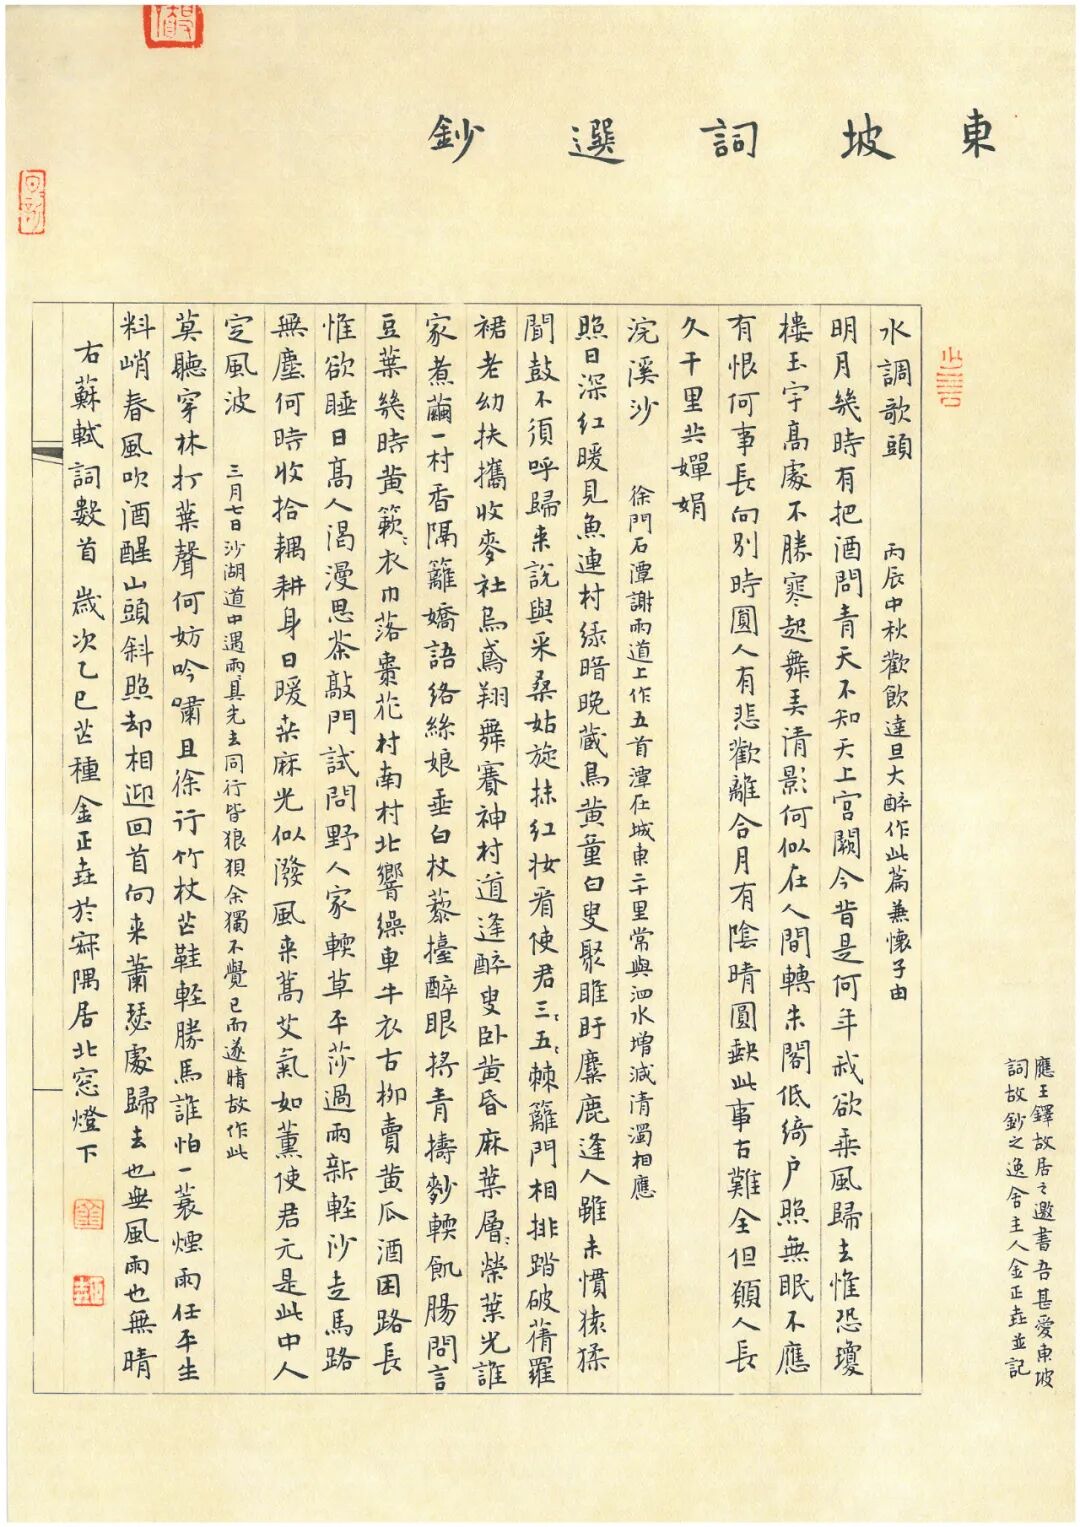 東坡詞選鈔
水調歌頭 丙辰中秋歡飲達旦大醉作此篇兼懷子由
明月幾時有把酒問青天不知天上宮闕今昔是何年我欲乘風歸去惟恐瓊
樓玉宇高處不勝寒起舞弄清影何似在人間轉朱閣低綺户照無眠不應
有恨何事長向別時圓人有悲歡離合月有陰晴圓缺此事古難全但願人長
久千里共嬋娟
浣溪沙 徐門石潭謝雨道上作五首潭在城東二十里常與泗水增減清濁相應
照日深紅暖見魚連村綠暗晚藏烏黄童白叟聚睢盱麋鹿逢人雖未慣猿猱
聞鼓不須呼歸来說與采桑姑旋抹紅妆看使君三:五:棘籬門相排踏破蒨羅
裙老幼扶攜收麥社烏鳶翔舞賽神村道逢醉叟卧黄昏麻葉層:檾葉光誰
家煮繭一村香隔籬嬌語絡絲娘垂白杖藜擡醉眼捋青擣麨輭飢腸問言
豆葉幾時黄簌:衣巾落棗花村南村北響繰車牛衣古柳賣黄瓜酒困路長
惟欲睡日高人渴漫思茶敲門試問野人家輭草平莎過雨新輕沙走馬路
無塵何時收拾耦耕身日暖桒麻光似潑風来蒿艾氣如薰使君元是此中人
定風波 三月七日沙湖道中遇雨:具先去同行皆狼狽余獨不覺已而遂晴故作此
莫聽穿林打葉聲何妨吟嘯且徐行竹杖芒鞋輕勝馬誰怕一蓑煙雨任平生
料峭春風吹酒醒山頭斜照却相迎回首向来蕭瑟處歸去也無風雨也無晴
右蘇軾詞數首 歲次乙巳芒種金正垚於寐隅居北窓燈下
應王鐸故居之邀書吾甚愛東坡
詞故鈔之逸舍主人金正垚並記